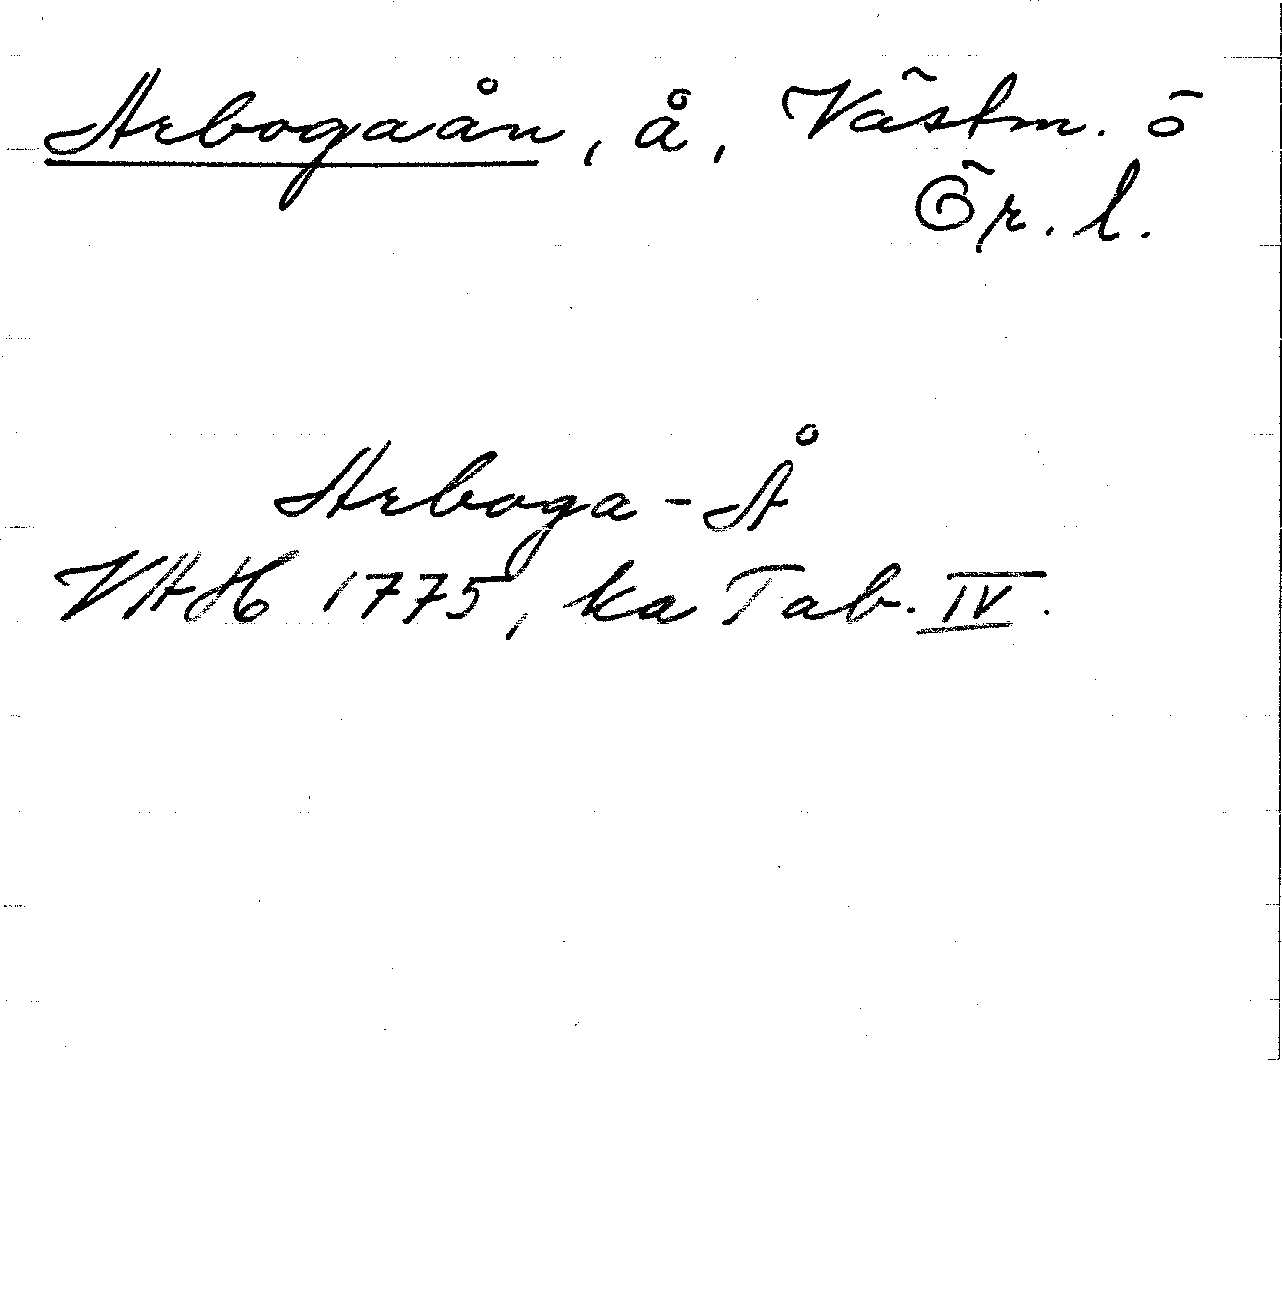 Arbogaån, å, Västm. ö
Ör. l.
Arboga-Å
VAH 1775, ka Tab. IV.